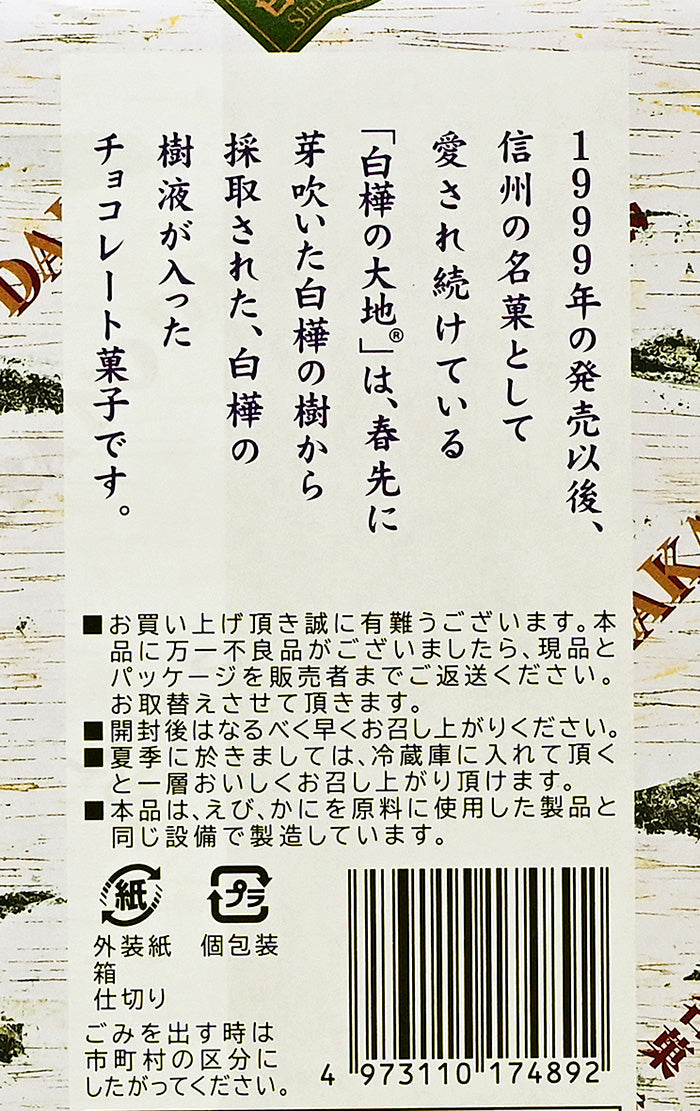 Shin
1999年の発売以後、
信州の名菓として
愛され続けている
「白樺の大地®」は、春先に
芽吹いた白樺の樹から
採取された、白樺の
樹液が入った
チョコレート菓子です。
DA
AKA
■お買い上げ頂き誠に有難うございます。本
品に万一不良品がございましたら、現品と
パッケージを販売者までご返送ください。
お取替えさせて頂きます。
■開封後はなるべく早くお召し上がりください。
■夏季に於きましては、冷蔵庫に入れて頂く
と一層おいしくお召し上がり頂けます。
■本品は、えび、かにを原料に使用した製品と
同じ設備で製造しています。
紙
外装紙
箱
仕切り
プラ
個包装
ごみを出す時は
市町村の区分に
したがってください。
4 973110 174892
菓